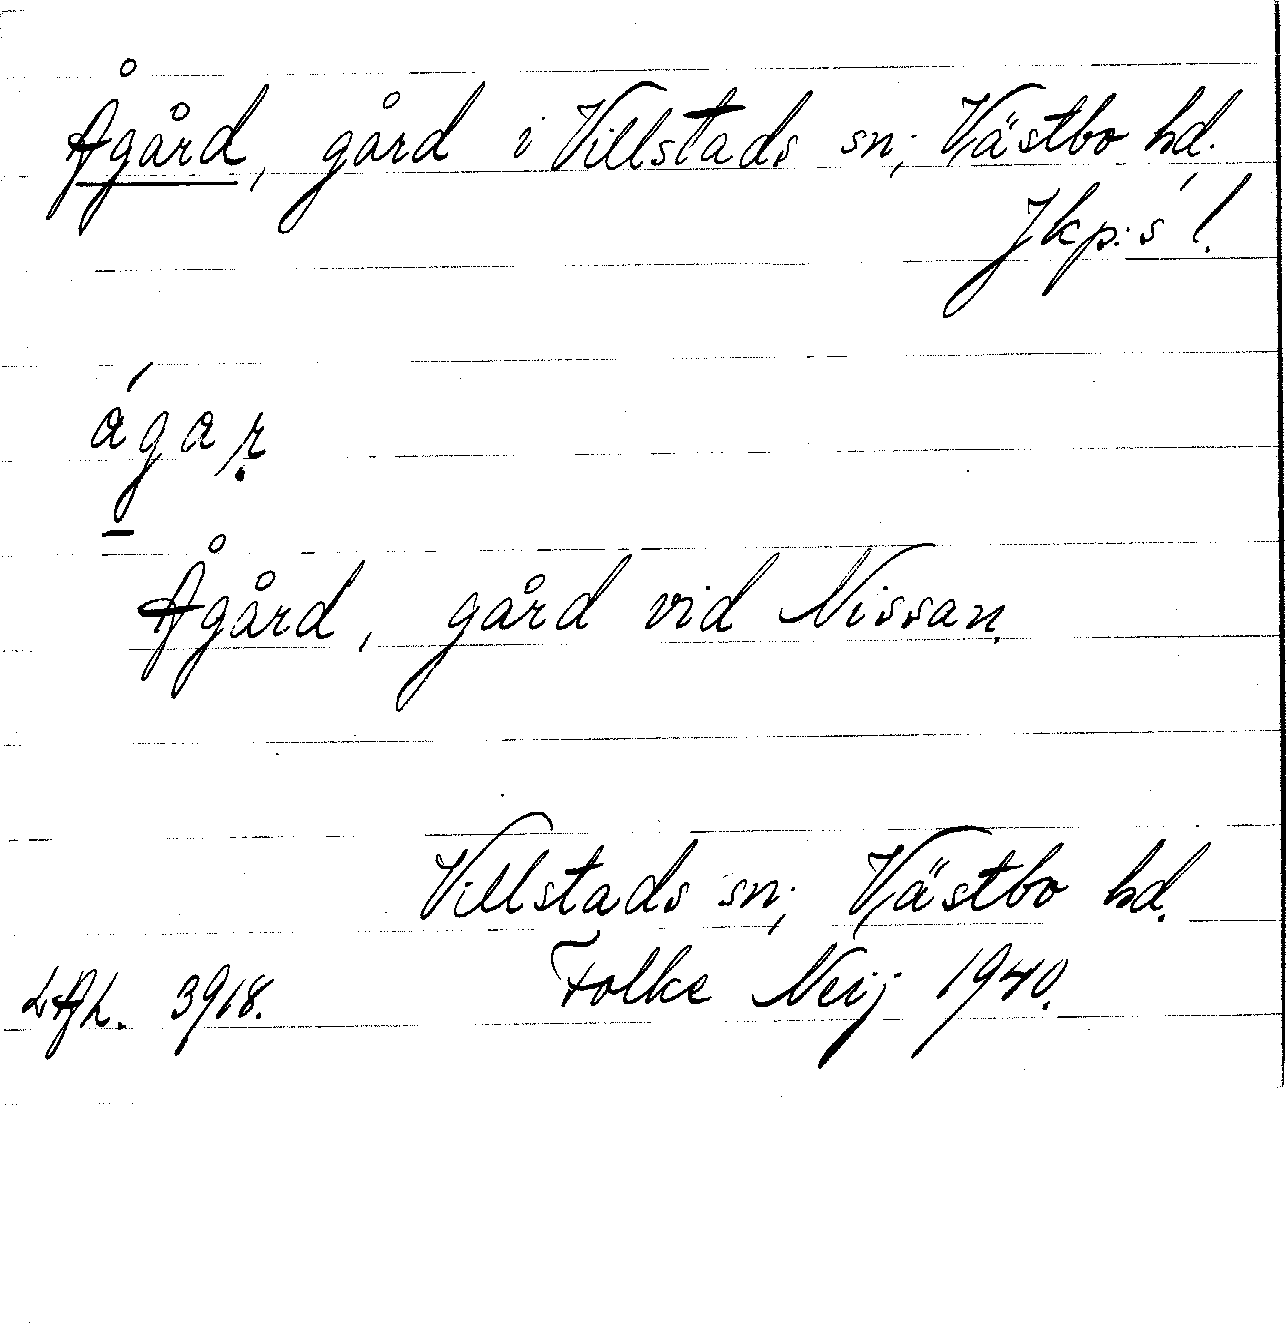 Ågård, gård i Villstads sn; Västbo hd.
Jkp:s l.
ágaṛ
Ågård, gård vid Nissan.
Villstads sn; Västbo hd.
LAL. 3918. Folke Neij 1940.